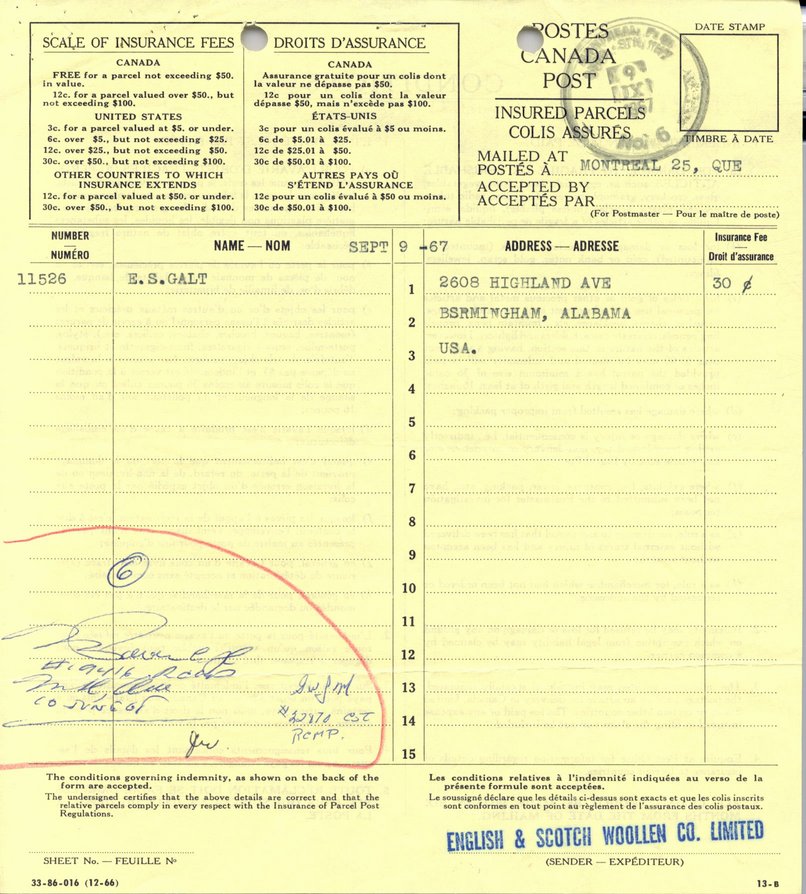 SCALE OF INSURANCE FEES
CANADA
FREE for a parcel not exceeding $50.
in value.
12c. for a parcel valued over $50., but
not exceeding $100.
UNITED STATES
3c. for a parcel valued at $5. or under.
6c. over $5., but not exceeding $25.
12c. over $25., but not exceeding $50.
30c. over $50., but not exceeding $100.
OTHER COUNTRIES TO WHICH
INSURANCE EXTENDS
12c. for a parcel valued at $50. or under.
30c. over $50., but not exceeding $100.
DROITS D'ASSURANCE
CANADA
Assurance gratuite pour un colis dont
la valeur ne dépasse pas $50.
12c pour un colis dont la valeur
dépasse $50, mais n'excède pas $100.
ÉTATS-UNIS
3c pour un colis évalué à $5 ou moins.
6c de $5.01 à $25.
12c de $25.01 à $50.
30c de $50.01 à $100.
AUTRES PAYS OÙ
S'ÉTEND L'ASSURANCE
12c pour un colis évalué à $50 ou moins.
30c de $50.01 à $100.
POSTES
CANADA
POST
INSURED PARCELS
COLIS ASSURÉS
DATE STAMP
TIMBRE À DATE
No. 6
MAILED AT
POSTÉS À MONTREAL 25, QUE
ACCEPTED BY
ACCEPTÉS PAR
(For Postmaster — Pour le maître de poste)
NUMBER
NUMÉRO
NAME — NOM SEPT 9 -67 ADDRESS — ADRESSE
Insurance Fee
Droit d'assurance
11526 E.S.GALT 1 2608 HIGHLAND AVE 30 ¢
2 BSRMINGHAM, ALABAMA
3 USA.
4
5
6
7
8
9
6
10
11
12
# 19416
13
14
RCMP.
15
The conditions governing indemnity, as shown on the back of the
form are accepted.
The undersigned certifies that the above details are correct and that the
relative parcels comply in every respect with the Insurance of Parcel Post
Regulations.
Les conditions relatives à l'indemnité indiquées au verso de la
présente formule sont acceptées.
Le soussigné déclare que les détails ci-dessus sont exacts et que les colis inscrits
sont conformes en tout point au règlement de l'assurance des colis postaux.
ENGLISH & SCOTCH WOOLLEN CO. LIMITED
SHEET No. — FEUILLE No
(SENDER — EXPÉDITEUR)
33-86-016 (12-66)
13-B